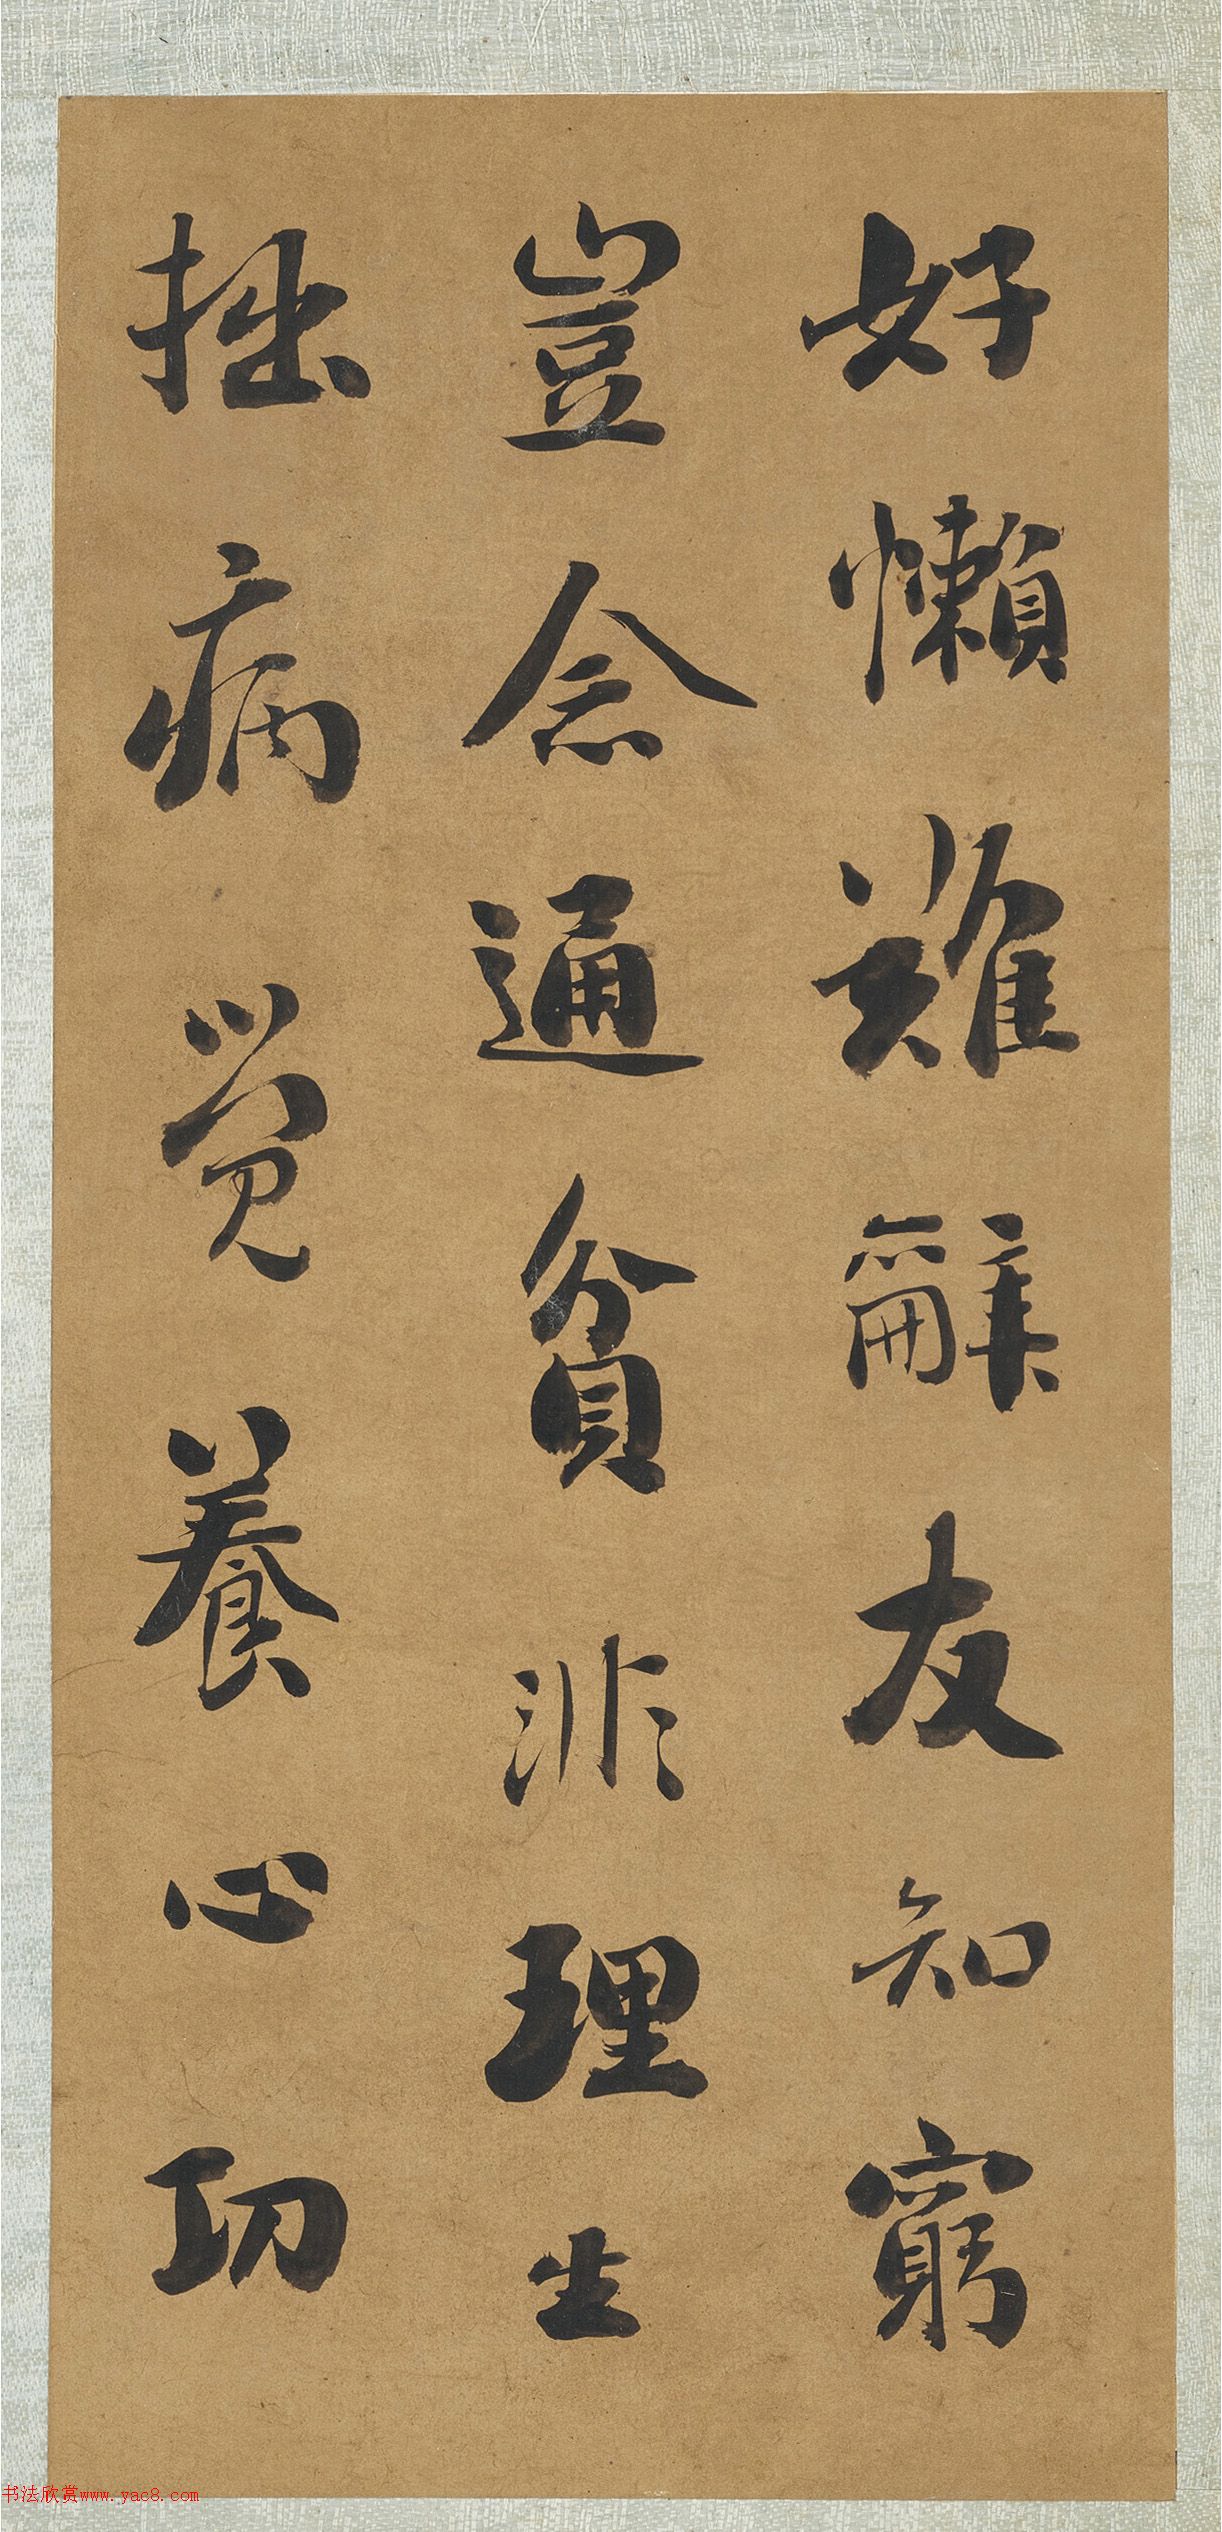 好懶難辭友知窮
豈念通貧非理生
拙病覺養心功
书法欣赏www.yac8.com